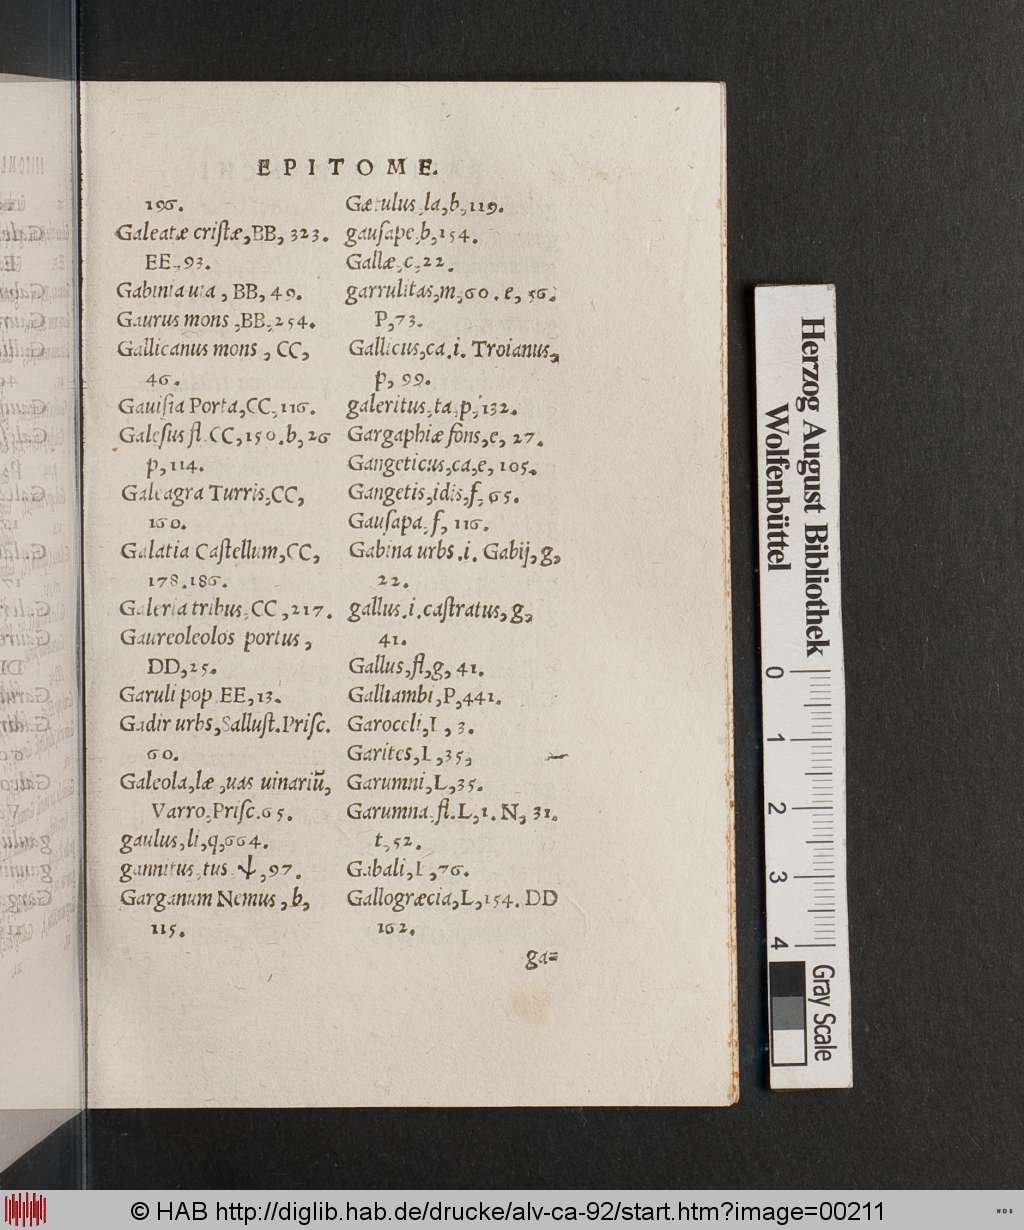 EPITOME.
196.
Galeatæ criſtæ, BB, 323.
EE, 93.
Gabinia uia, BB, 49.
Gaurus mons, BB, 254.
Gallicanus mons, CC,
46.
Gauiſia Porta, CC, 116.
Galeſus fl. CC, 150. b, 26
p, 114.
Galeagra Turris, CC,
160.
Galatia Caſtellum, CC,
178. 186.
Galeria tribus, CC, 217.
Gaureoleolos portus,
DD, 25.
Garuli pop EE, 13.
Gadir urbs, Salluſt. Priſc.
60.
Galeola, læ, uas uinariū,
Varro, Priſc. 65.
gaulus, li, q, 664.
gannitus, tus ,97.
Garganum Nemus, b,
115.
Gætulus, la, b, 119.
gauſape, b, 154.
Gallæ, c, 22.
garrulitas, m, 60. e, 56.
P, 73.
Gallicus, ca. i. Troianus,
p, 99.
galeritus, ta, p, 132.
Gargaphiæ fons, e, 27.
Gangeticus, ca, e, 105.
Gangetis, idis, f, 65.
Gauſapa, f, 116.
Gabina urbs .i. Gabij, g,
22.
gallus .i. caſtratus, g,
41.
Gallus, fl, g, 41.
Galliambi, P, 441.
Garoceli, L, 3.
Garites, L, 35,
Garumni, L, 35.
Garumna. fl. L, 1. N, 31.
t, 52.
Gabali, L, 76.
Gallogræcia, L, 154. DD
162.
ga=
Herzog August Bibliothek
Wolfenbüttel
0 1 2 3 4
Gray Scale
© HAB http://diglib.hab.de/drucke/alv-ca-92/start.htm?image=00211